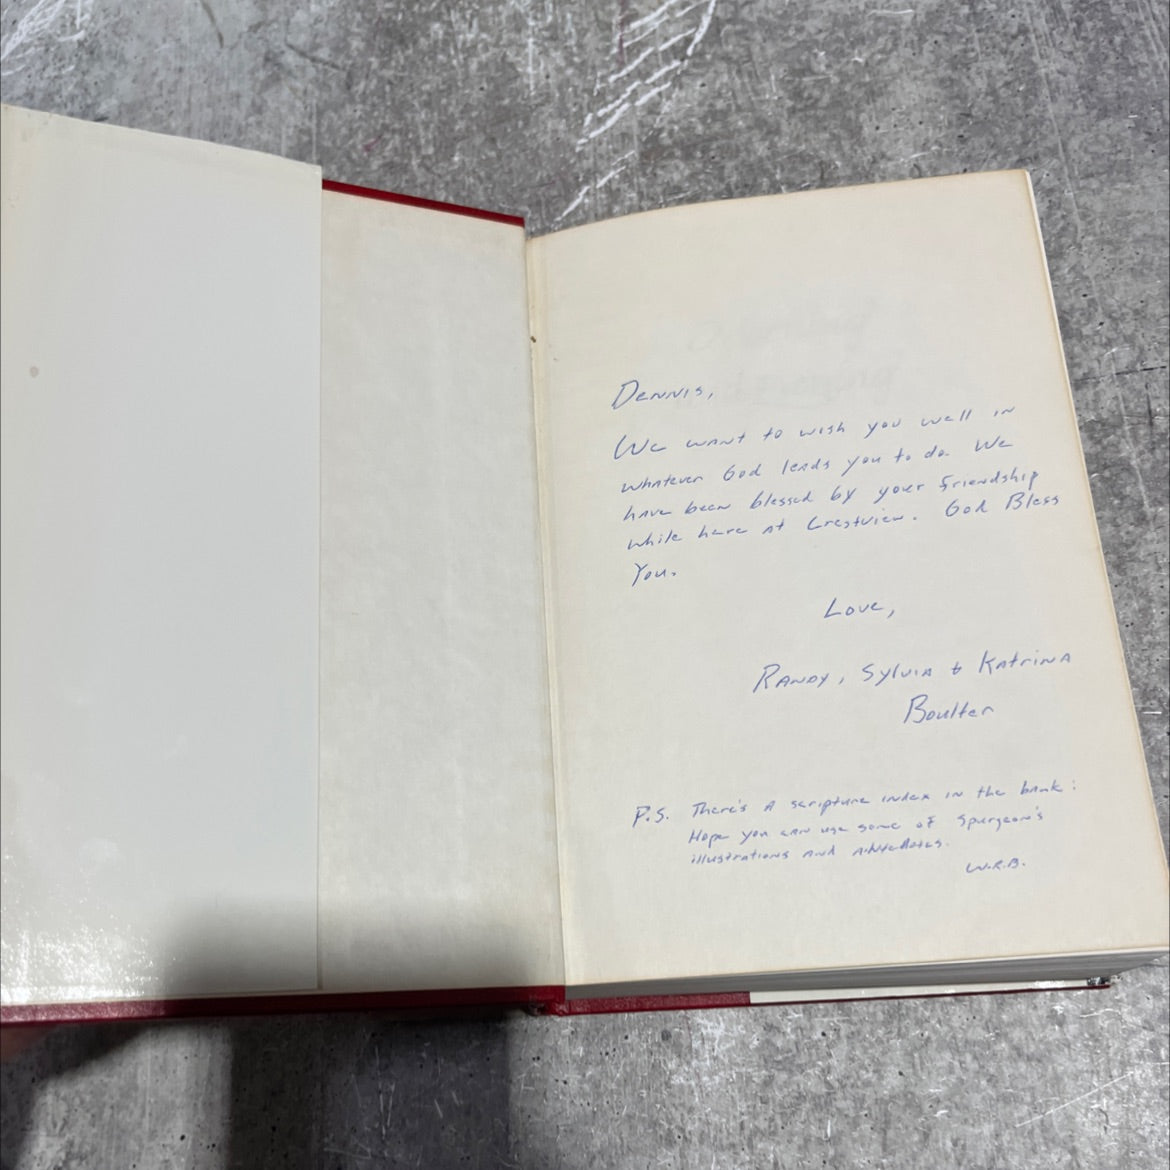 Dennis,
We want to wish you well in
whatever God leads you to do. We
have been blessed by your friendship
while here at Crestview. God Bless
You.
Love,
Randy, Sylvia & Katrina
Boulter
P.S. There's a scripture index in the back:
Hope you can use some of Spurgeon's
illustrations and
W.R.B.